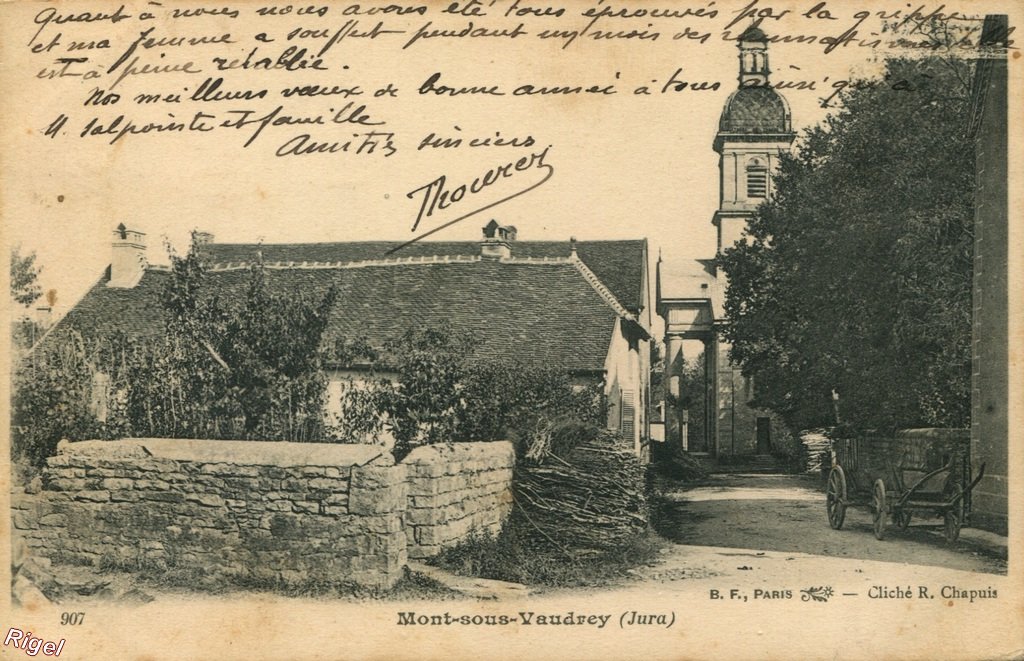 Quant à nous nous avons été tous éprouvés par la grippe
et ma femme a souffert pendant un mois des rhumatismes elle
est à peine rétablie.
Nos meilleurs vœux de bonne année à tous ainsi qu'à
M. Salpointe et famille
Amitiés sincères
Thouret
B. F., PARIS — Cliché R. Chapuis
907 Mont-sous-Vaudrey (Jura)
Rigel